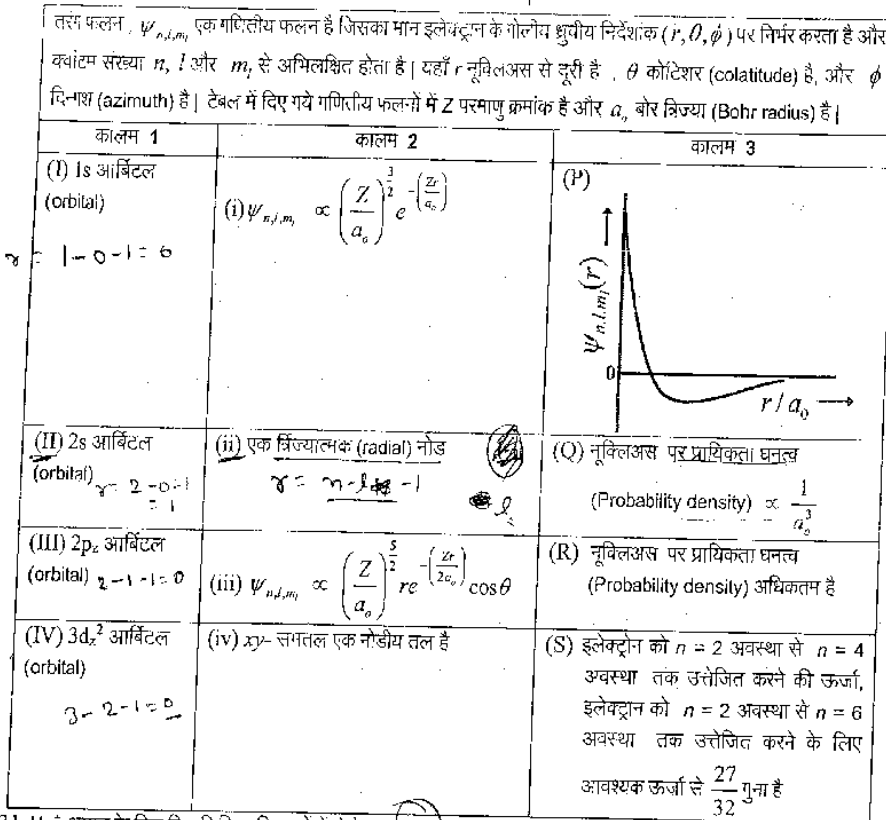 तरंग फलन , ψ n,l,mₗ एक गणितीय फलन है जिसका मान इलेक्ट्रान के गोलीय ध्रुवीय निर्देशांक (r,θ,ϕ) पर निर्भर करता है और
क्वांटम संख्या n, l और mₗ से अभिलक्षित होता है | यहाँ r नूक्लिअस से दूरी है , θ कोटिशर (colatitude) है, और ϕ
दिगंश (azimuth) है | टेबल में दिए गये गणितीय फलनों में Z परमाणु क्रमांक है और aₒ बोर त्रिज्या (Bohr radius) है |
कालम 1
कालम 2
कालम 3
(I) 1s आर्बिटल
(orbital)
r = 1-0-1=0
(i) ψ n,l,mₗ ∝ (Z/aₒ)^(3/2) e^-(Zr/aₒ)
(P)
ψ n,l,mₗ (r)
0
r/a₀
(II) 2s आर्बिटल
(orbital)
r= 2-0-1
=1
(ii) एक त्रिज्यात्मक (radial) नोड
r= n-l -1
l
(Q) नूक्लिअस पर प्रायिकता घनत्व
(Probability density) ∝ 1/aₒ³
(III) 2p_z आर्बिटल
(orbital) 2-1-1=0
(iii) ψ n,l,mₗ ∝ (Z/aₒ)^(5/2) re^-(Zr/2aₒ) cosθ
(R) नूक्लिअस पर प्रायिकता घनत्व
(Probability density) अधिकतम है
(IV) 3d_z² आर्बिटल
(orbital)
3-2-1=0
(iv) xy- समतल एक नोडीय तल है
(S) इलेक्ट्रोन को n = 2 अवस्था से n = 4
अवस्था तक उत्तेजित करने की ऊर्जा,
इलेक्ट्रोन को n = 2 अवस्था से n = 6
अवस्था तक उत्तेजित करने के लिए
आवश्यक ऊर्जा से 27/32 गुना है